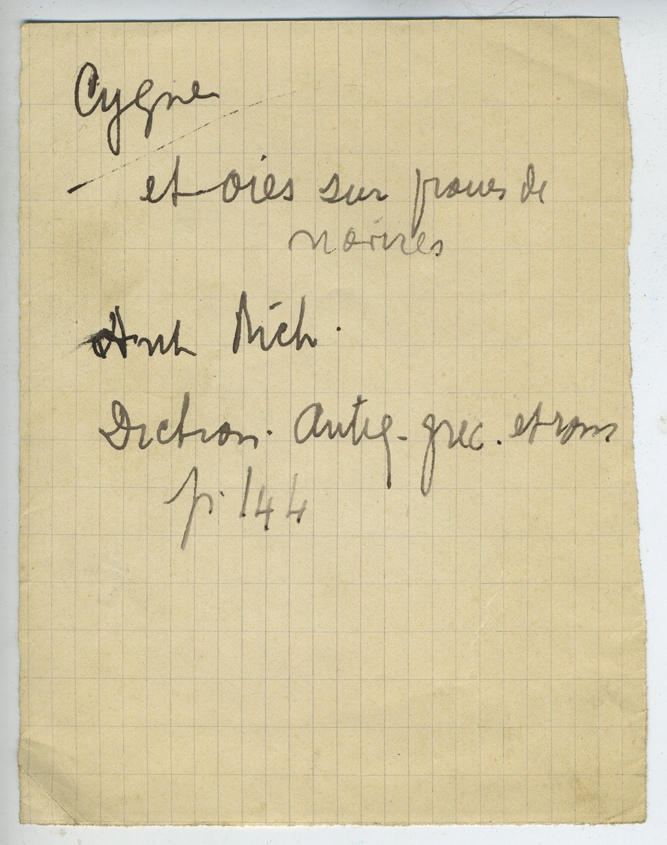 Cygne
et oies sur proues de
navires
Anth Rich.
Diction. Antiq. grec. et rom
p. 144